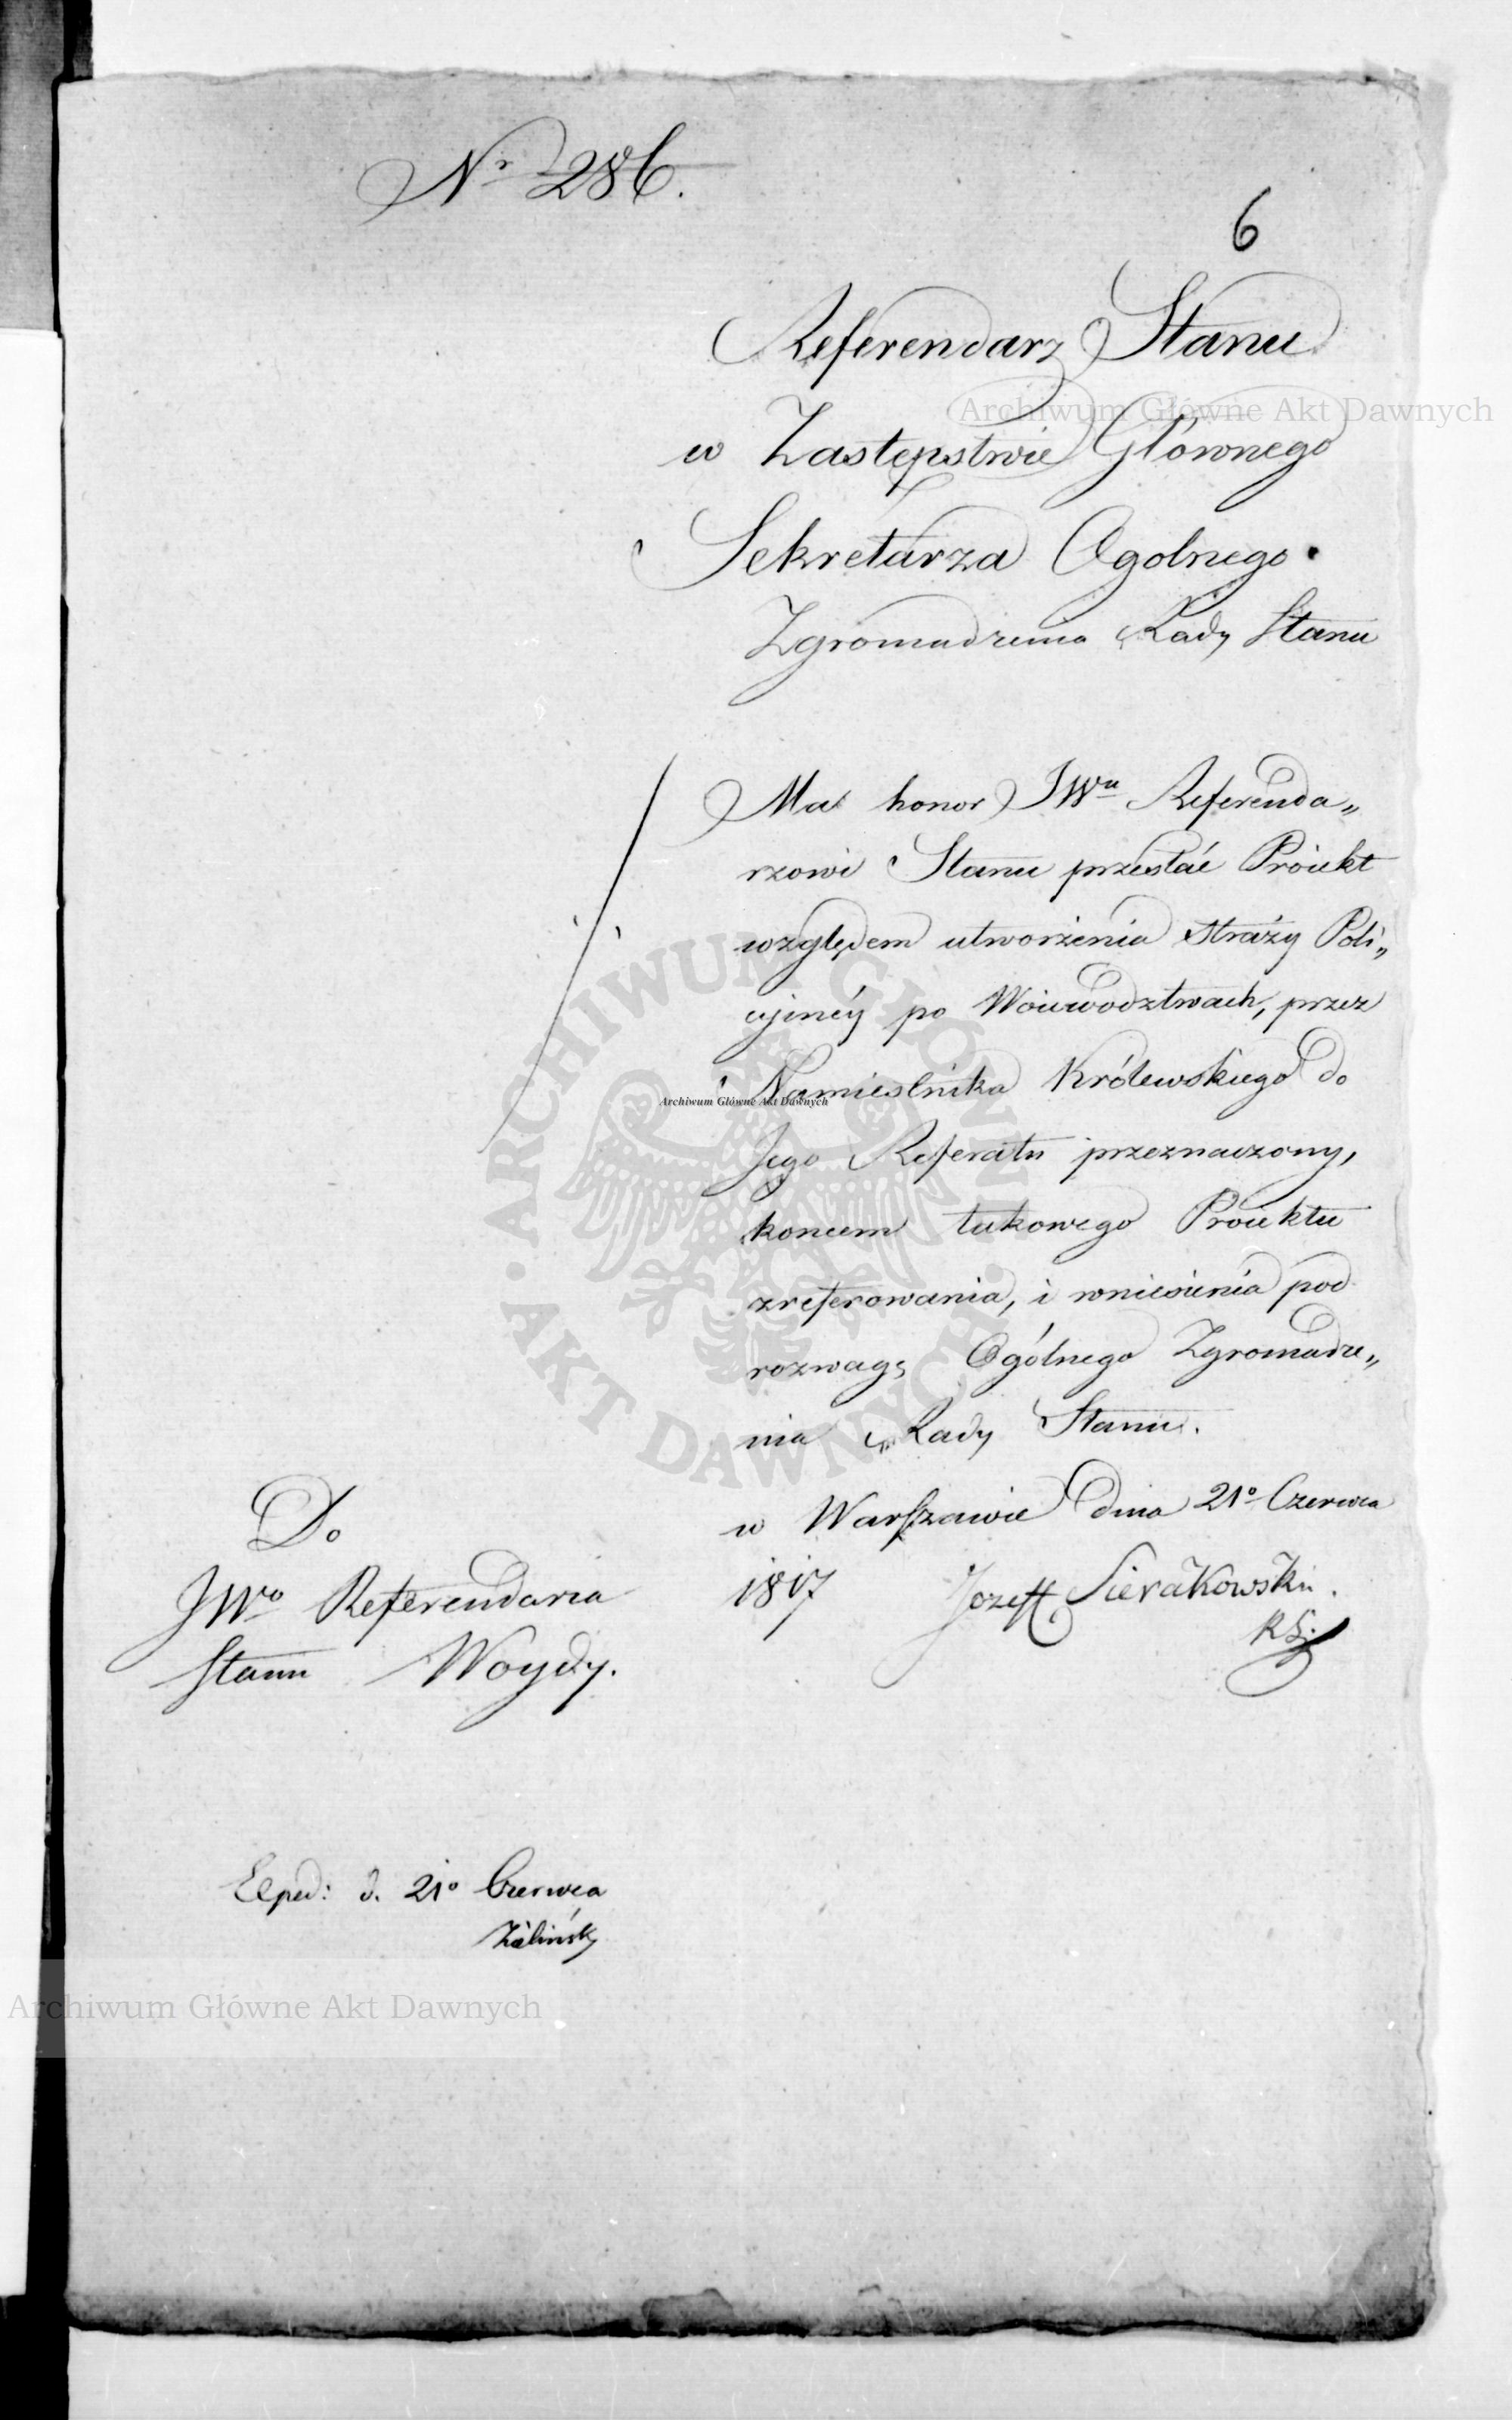 Nr 286.
6
Referendarz Stanu
w Zastępstwie Głównego
Sekretarza Ogolnego
Zgromadzenia Rady Stanu
Ma honor JWu Referenda„
rzowi Stanu przesłać Proiekt
względem utworzenia Straży Poli„
cyinéy po Woiewodztwach, przez
Namiestnika Królewskiego do
Jego Referatu przeznaczony,
koncem takowego Proiektu
zreferowania, i wniesienia pod
rozwagę Ogólnego Zgromadze„
nia Rady Stanu.
w Warszawie dnia 21o Czerwca
1817 Jozeff Sierakowski.
R S:
Do
JWo Referendarza
Stanu Woydy.
Exped: d. 21o Czerwca
Zaliński
Archiwum Główne Akt Dawnych
Archiwum Główne Akt Dawnych
ARCHIWUM GŁÓWNE AKT DAWNYCH
Archiwum Główne Akt Dawnych